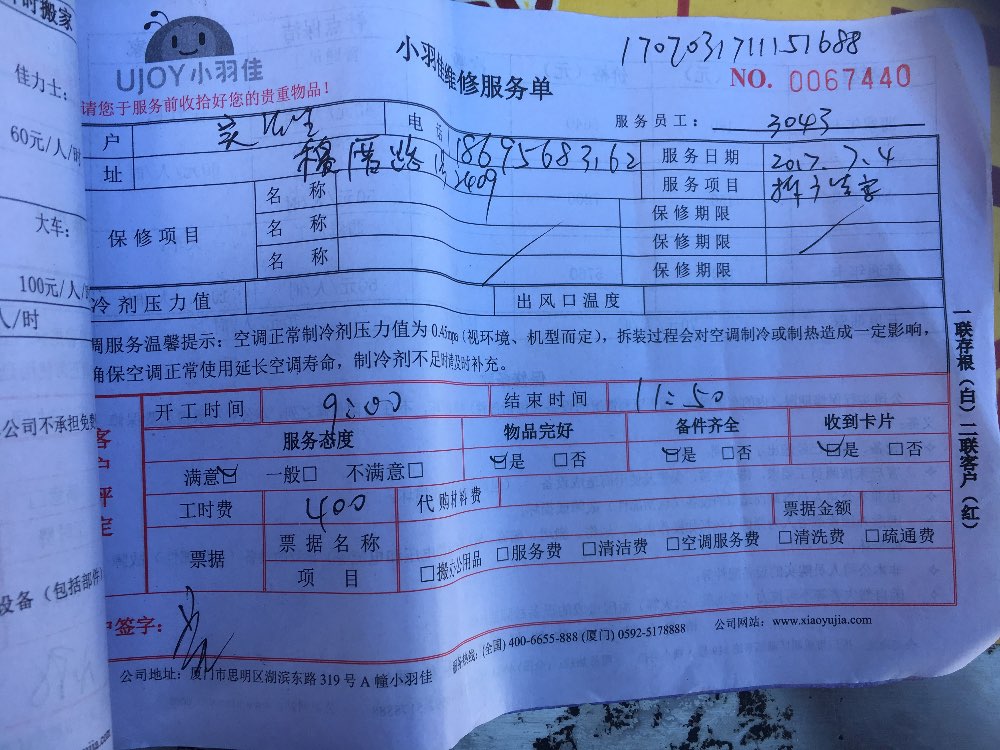 时搬家
佳力士：
60元/人/时
大车：
100元/人/
人/时
公司不承担免费
设备（包括部件）
UJOY小羽佳
请您于服务前收拾好您的贵重物品！
小羽佳维修服务单
1707031711151688
NO. 0067440
服务员工： 3043
户 吴先生 电话 18695683162 服务日期 2017.7.4
址 2409 服务项目
保修项目 名称 保修期限
名称 保修期限
名称 保修期限
冷剂压力值 出风口温度
调服务温馨提示：空调正常制冷剂压力值为0.45mpa（视环境、机型而定），拆装过程会对空调制冷或制热造成一定影响，
确保空调正常使用延长空调寿命，制冷剂不足时请及时补充。
客户评定
开工时间 9:00 结束时间 11:50
服务态度 物品完好 备件齐全 收到卡片
满意☑ 一般□ 不满意□ ☑是 □否 ☑是 □否 ☑是 □否
工时费 400 代购材料费 票据金额
票据 票据名称
项目 □搬办公用品 □服务费 □清洁费 □空调服务费 □清洗费 □疏通费
户签字：
公司地址：厦门市思明区湖滨东路319号A幢小羽佳 服务热线：(全国) 400-6655-888 (厦门) 0592-5178888 公司网站：www.xiaoyujia.com
一联存根（白）二联客户（红）